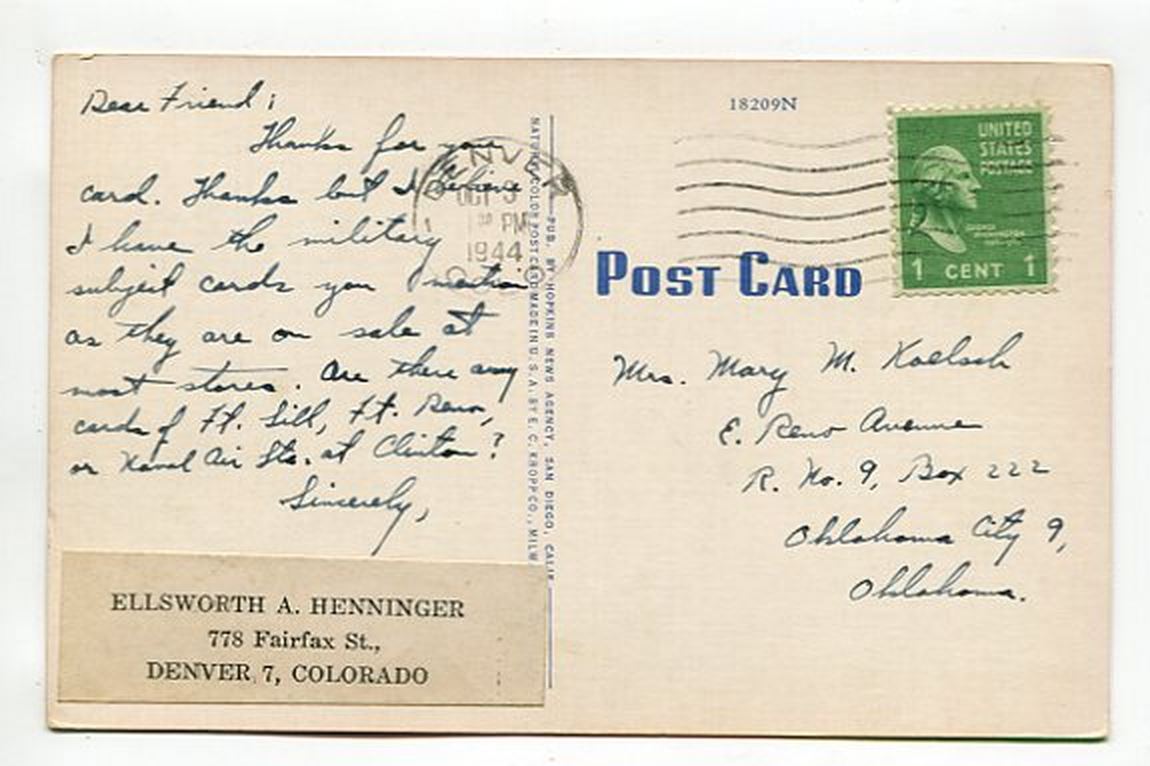 Dear Friend:
Thanks for your
card. Thanks but I believe
I have the military
subject cards you mention
as they are on sale at
most stores. Are there any
cards of Ft. Sill, Ft. Reno,
or Naval Air Sta. at Clinton?
Sincerely,
ELLSWORTH A. HENNINGER
778 Fairfax St.,
DENVER 7, COLORADO
OCT 3
PM
1944
NATURAL COLOR POST CARD MADE IN U. S. A. BY E. C. KROPP CO., MILW.
PUB. BY HOPKINS NEWS AGENCY, SAN DIEGO, CALIF.
18209N
UNITED
STATES
POSTAGE
1 CENT 1
POST CARD
Mrs. Mary M. Koelsch
E. Reno Avenue
R. No. 9, Box 222
Oklahoma City 9,
Oklahoma.